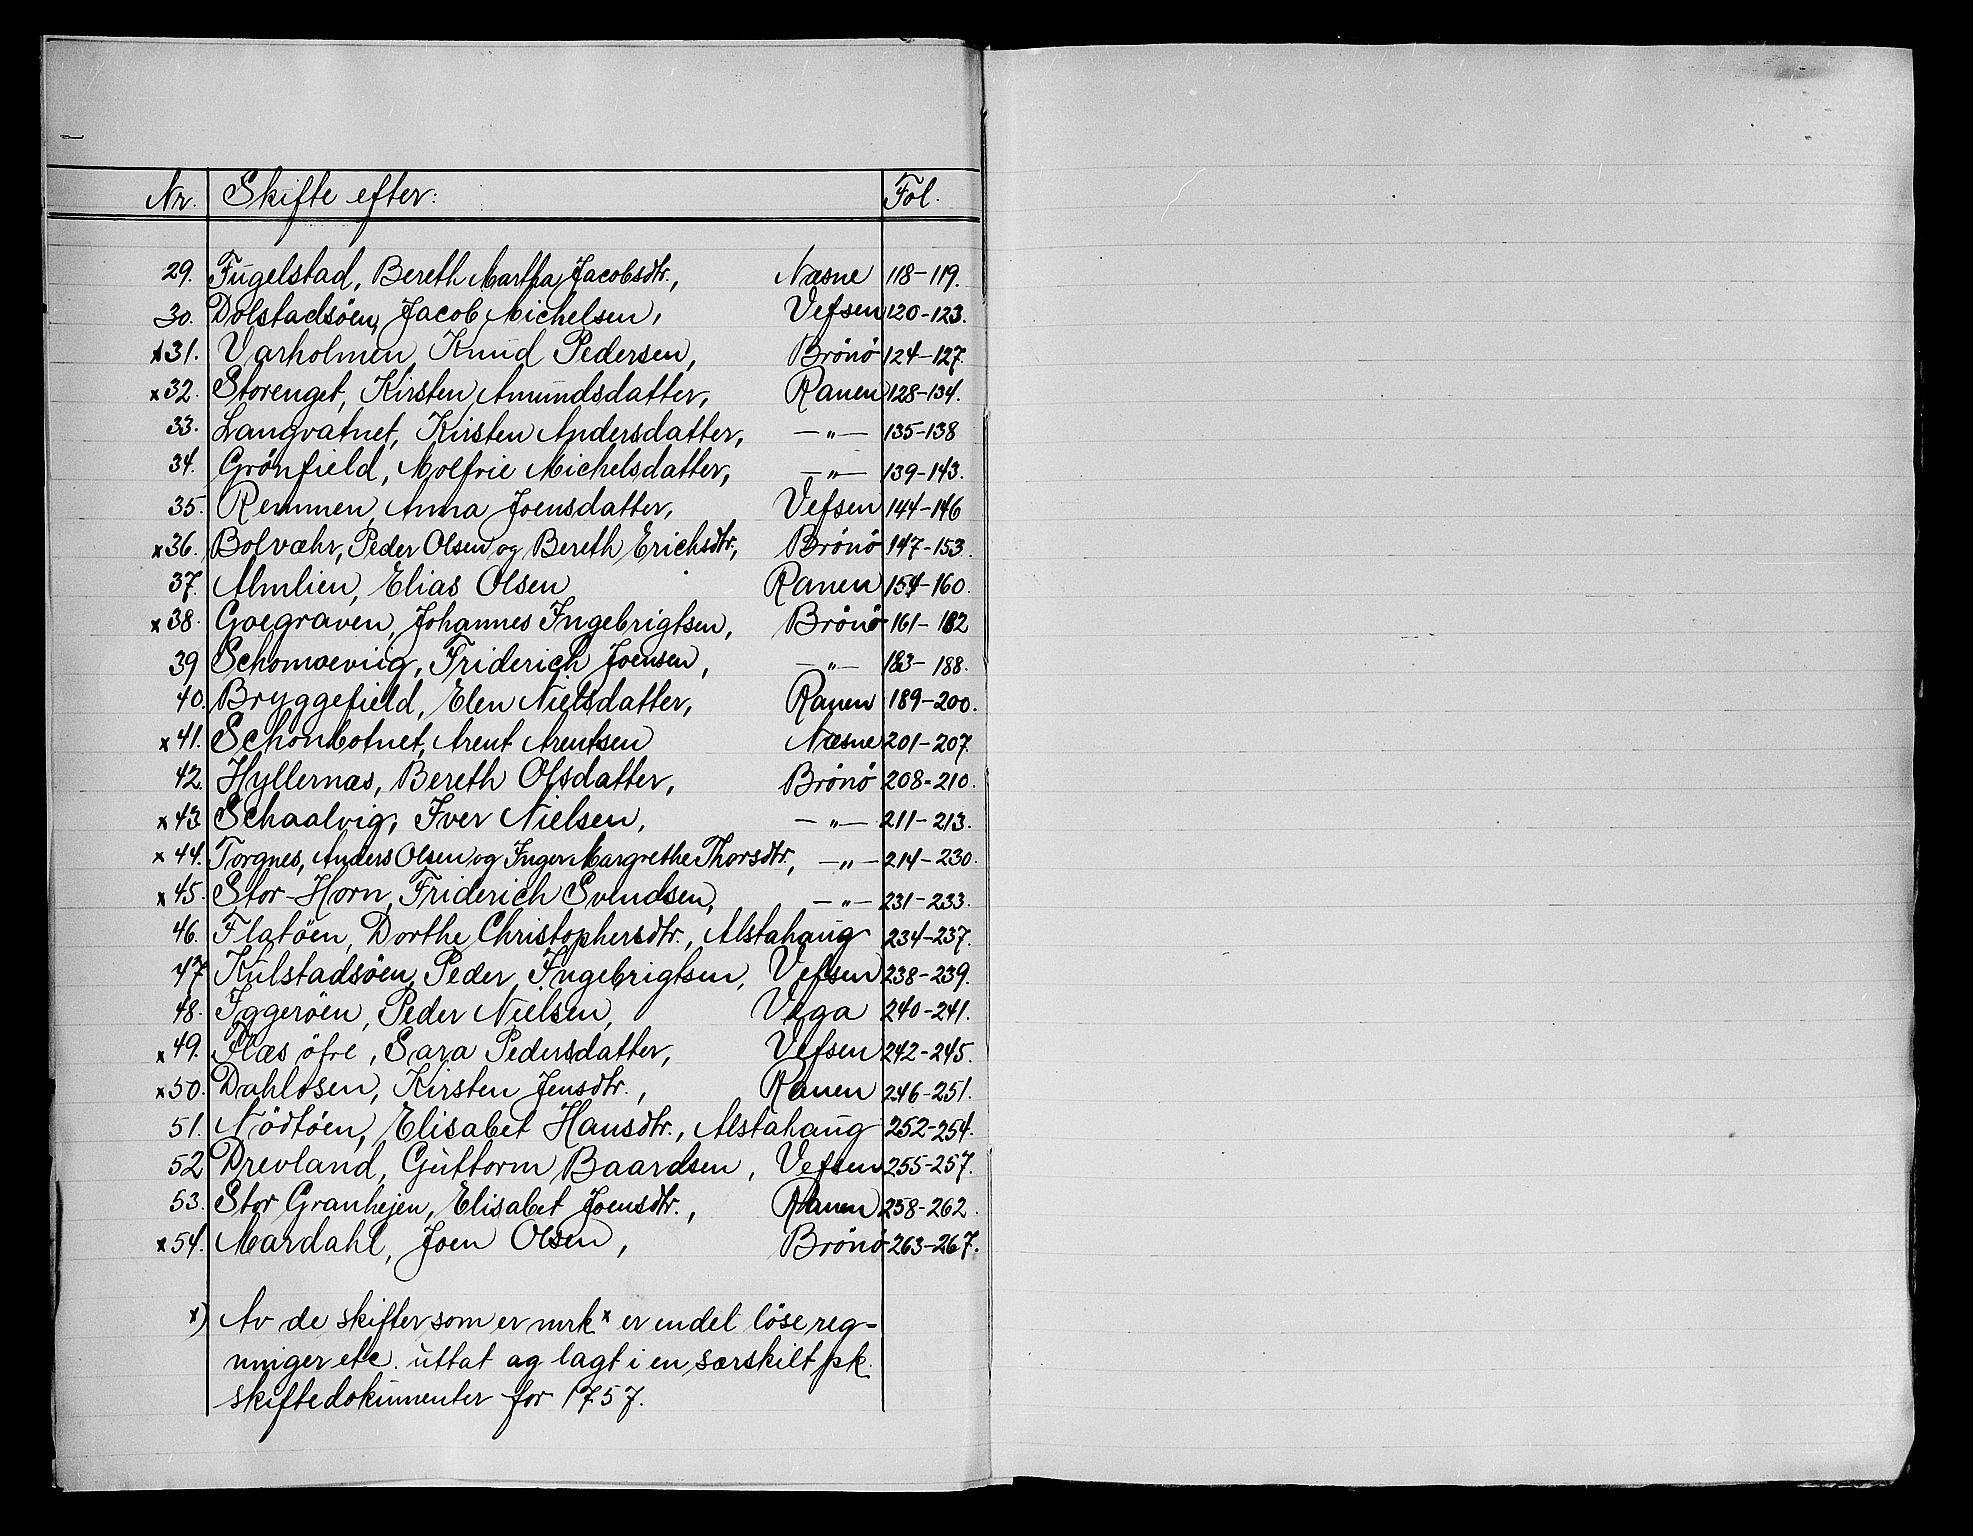 Nr. Skifte efter: Fol.
29. Fugelstad, Bereth Martha Jacobsdtr., Næsne 118-119.
30. Dolstadsöen, Jacob Michelsen, Vefsen 120-123.
x31. Varholmen, Knud Pedersen, Brönö 124-127.
x32. Storenget, Kirsten Amundsdatter, Ranen 128-134.
33. Langvatnet, Kirsten Andersdatter, -"- 135-138
34. Grönfield, Molfrie Michelsdatter, -"- 139-143.
35. Remmen, Anna Joensdatter, Vefsen 144-146
x36. Bolvæhr, Peder Olsen og Bereth Erichsdtr, Brönö 147-153.
37. Almlien, Elias Olsen Ranen 154-160.
x38. Goegraven, Johannes Ingebrigtsen, Brönö 161-182
39 Schomoeviig, Friderich Joensen, -"- 183-188.
40. Bryggefield, Elen Nielsdatter, Ranen 189-200.
x41. Schonbotnet, Arent Arentsen Næsne 201-207.
42. Hyllernæs, Bereth Olsdatter, Brönö 208-210.
x43 Schaalvig, Iver Nielsen, -"- 211-213.
x44. Torgnes, Anders Olsen og Inger Margrethe Thorsdtr, -"- 214-230.
x45. Stor-Horn, Friderich Svendsen, -"- 231-233.
46. Flatöen, Dorthe Christophersdtr., Alstahaug 234-237.
47 Kulstadsöen, Peder Ingebrigtsen, Vefsen 238-239.
48. Iggeröen, Peder Nielsen, Vega 240-241.
x49. Flæs öfre, Sara Pedersdatter, Vefsen 242-245.
x50. Dahlosen, Kirsten Jensdtr., Ranen 246-251.
51. Nödtöen, Elisabet Hansdtr., Alstahaug 252-254.
52 Drevland, Guttorm Baardsen, Vefsen 255-257.
53. Stor Granhejen, Elisabet Joensdtr., Ranen 258-262.
x54. Mardahl, Joen Olsen, Brönö 263-267.
x) Av de skifter som er mrk x er endel löse reg-
ninger etc. uttat og lagt i en særskilt pk.
skiftedokumenter for 1757.